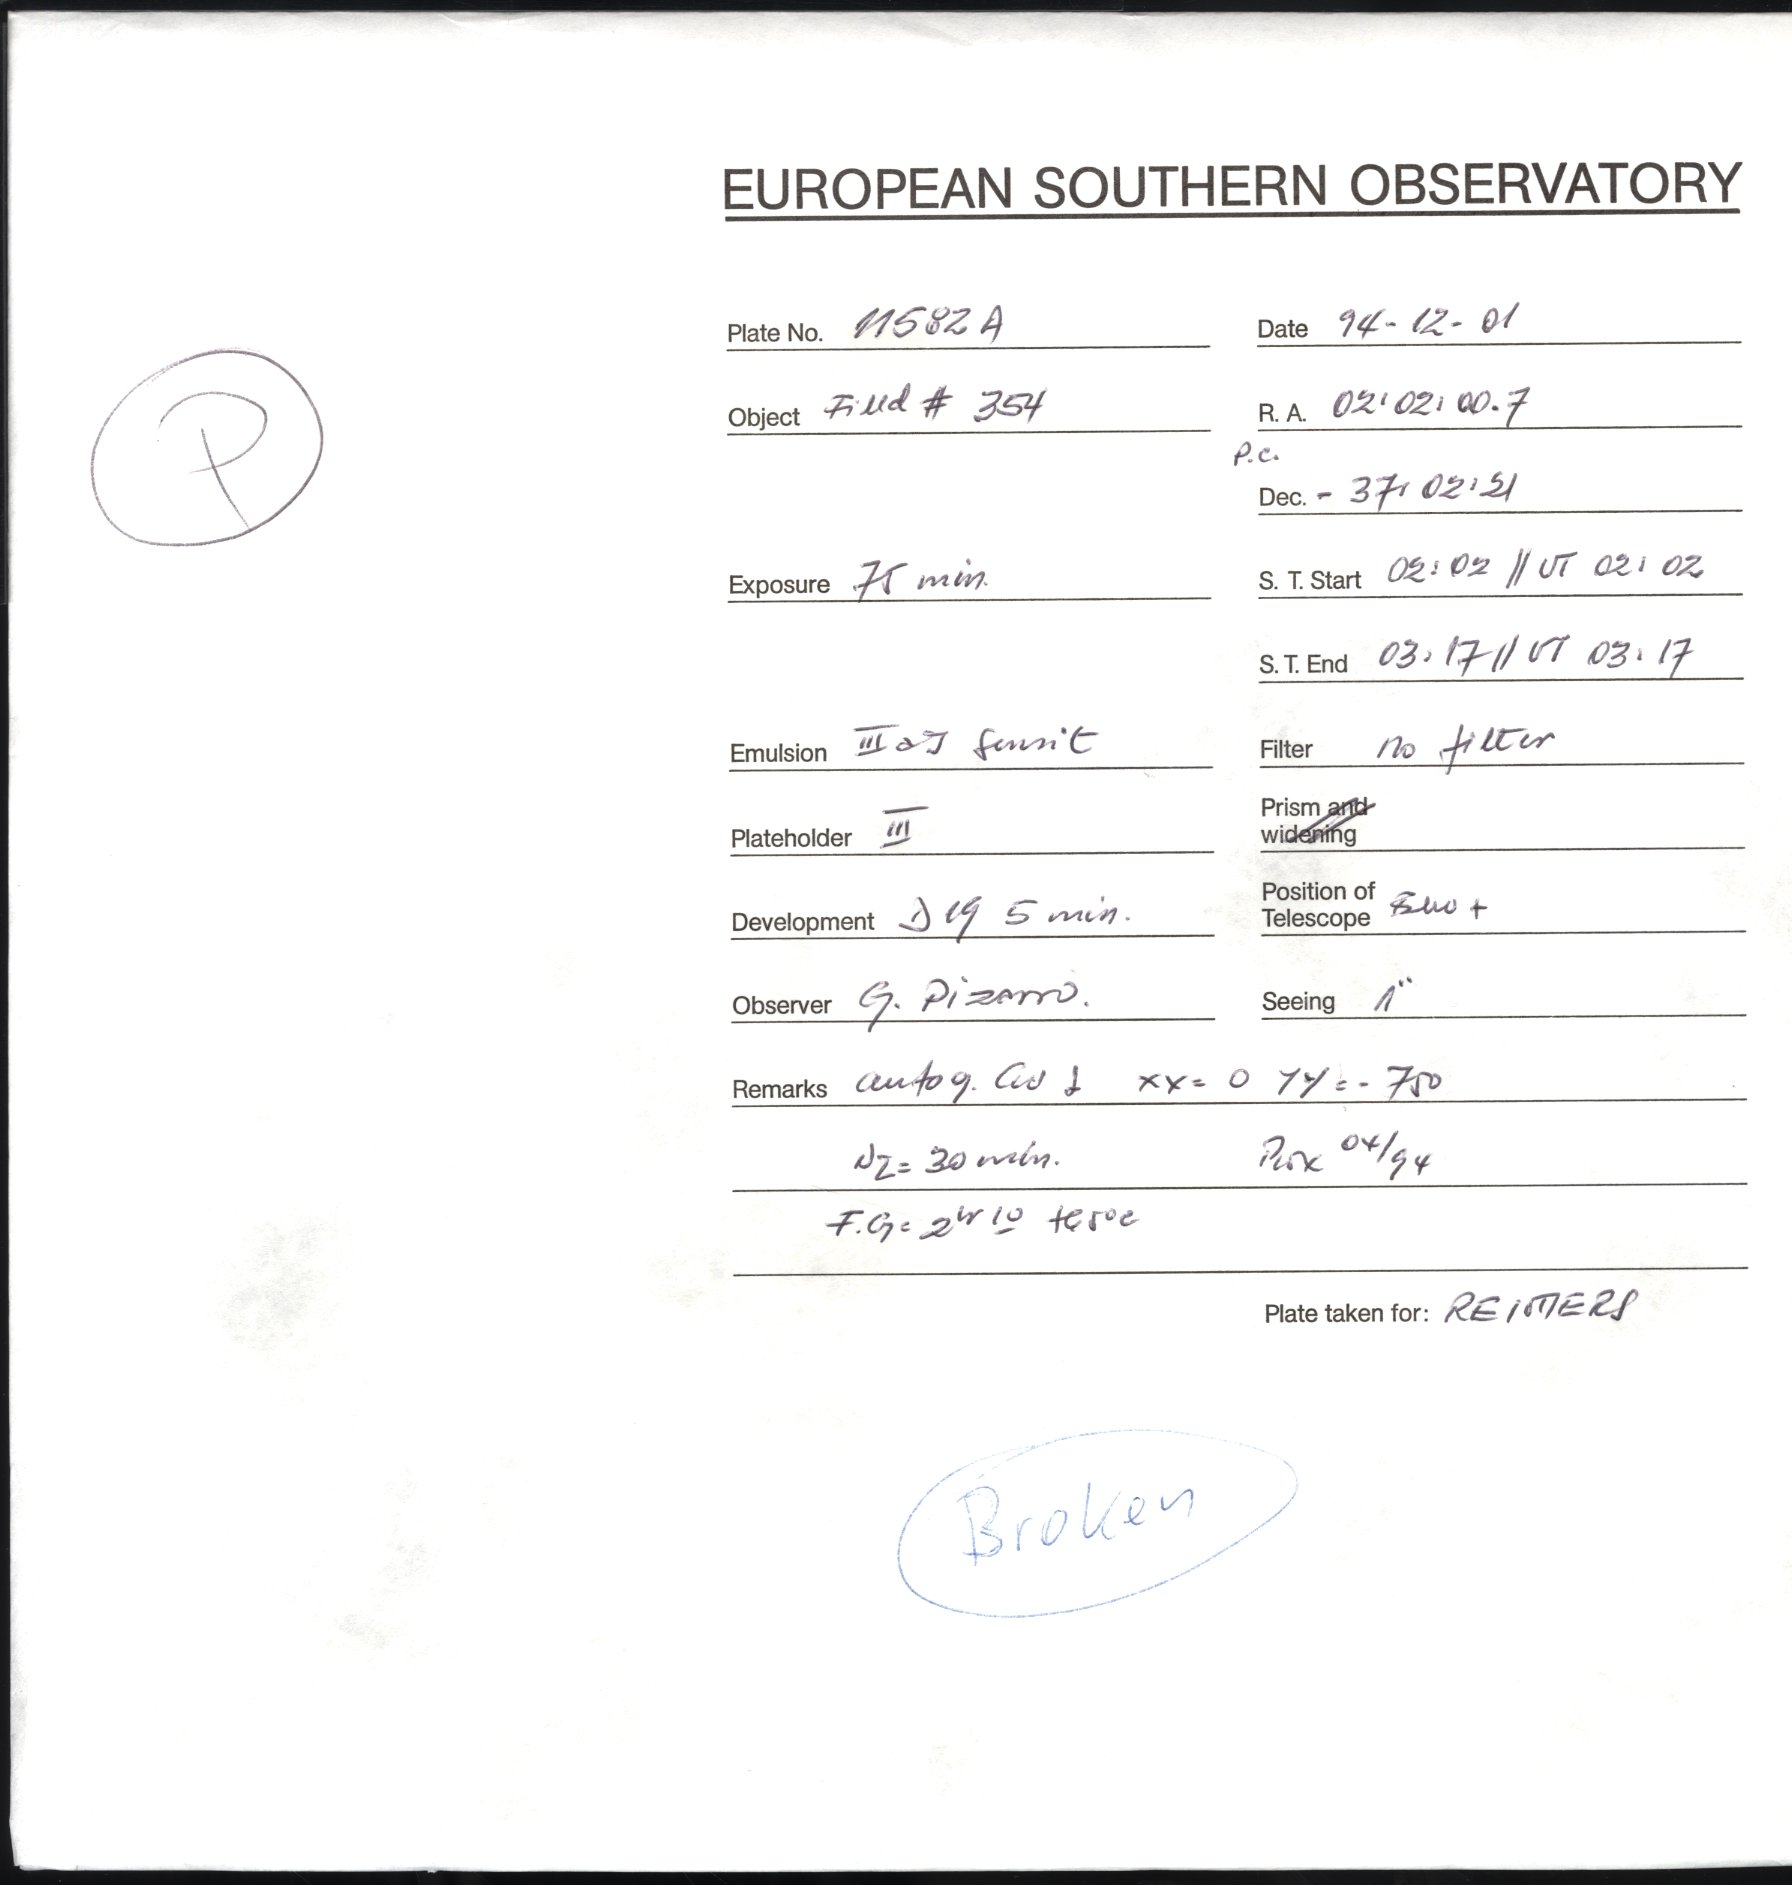 EUROPEAN SOUTHERN OBSERVATORY
P
Plate No. 11582 A Date 94-12-01
Object Field # 354 R. A. 02:02:00.7
P.C.
Dec. - 37:02:21
Exposure 75 min. S. T. Start 02:02 // UT 02:02
S. T. End 03:17 // UT 03:17
Emulsion III aJ sensit Filter no filter
Plateholder III Prism and
widening
Development D 19 5 min. Position of
Telescope +
Observer G. Pizarro. Seeing 1"
Remarks autog. xx= 0 yy=- 750
N2= 30 min. 04/94
F.G=
Plate taken for: REIMERS
Broken